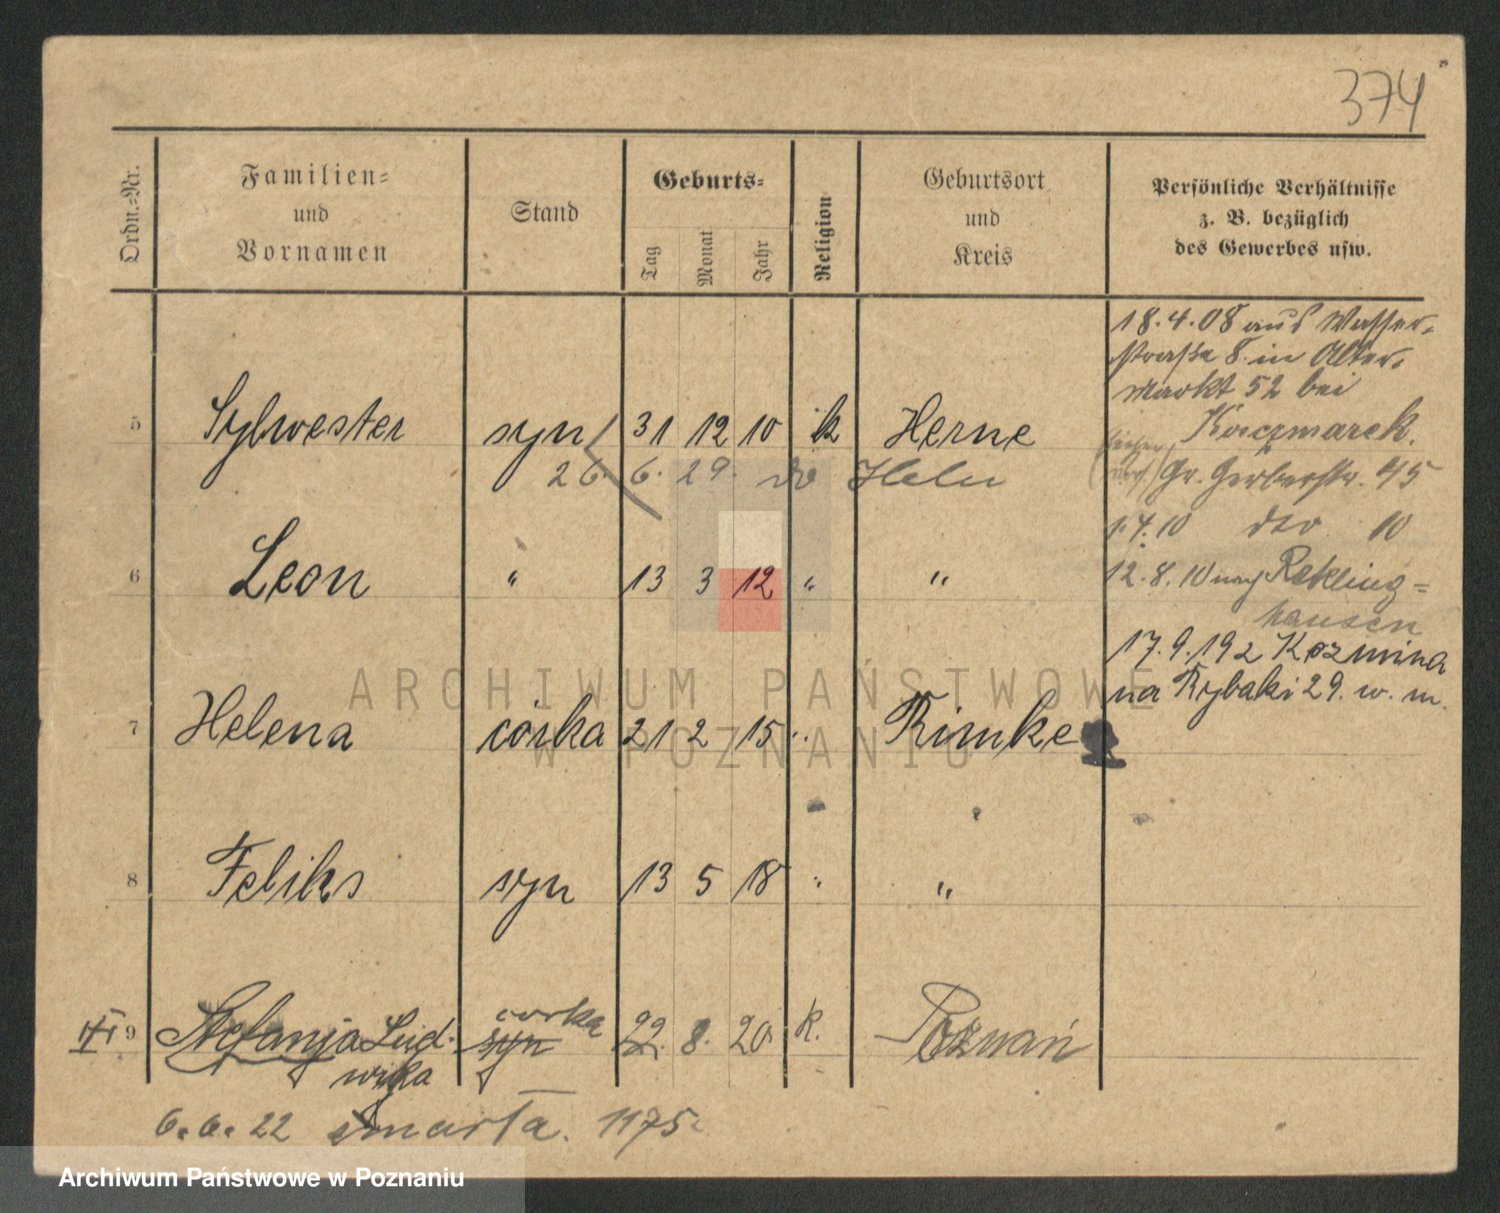 374
Ordn.-Nr.
Familien-
und
Vornamen
Stand
Geburts-
Tag
Monat
Jahr
Religion
Geburtsort
und
Kreis
Persönliche Verhältnisse
z. B. bezüglich
des Gewerbes usw.
18.4.08 aus Wasser-
straße 8 in Alter-
markt 52 bei
Kaczmarek.
Gr. Gerberstr. 45
1.4.10 dto 10
12.8.10 nach Rekling-
hausen
17.9.192 Kozmina
na Rybaki 29. w. m.
5 Sylwester syn 31 12 10 k Herne
26. 6. 29. do Helu
6 Leon " 13 3 12 " "
7 Helena córka 21 2 15 " Rimke
8 Feliks syn 13 5 18 " "
9 Stefanja Lud-
wika
syn córka 22. 8. 20 k. Poznań
6.6.22 zmarła. 1175
ARCHIWUM PAŃSTWOWE
W POZNANIU
Archiwum Państwowe w Poznaniu